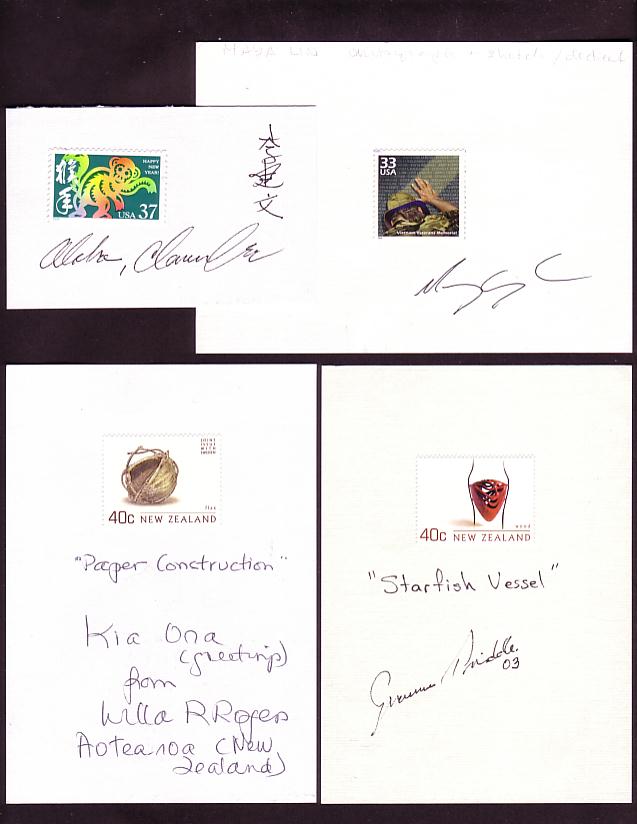 MAYA LIN
猴年
HAPPY
NEW
YEAR!
USA 37
Aloha, Clarence Lee
33
USA
Vietnam Veterans Memorial
JOINT
ISSUE
WITH
SWEDEN
flax
40c NEW ZEALAND
"Paper Construction"
Kia Ora
(greetings)
from
Willa R Rogers
Aotearoa (New
Zealand)
wood
40c NEW ZEALAND
"Starfish Vessel"
Graeme Priddle
03